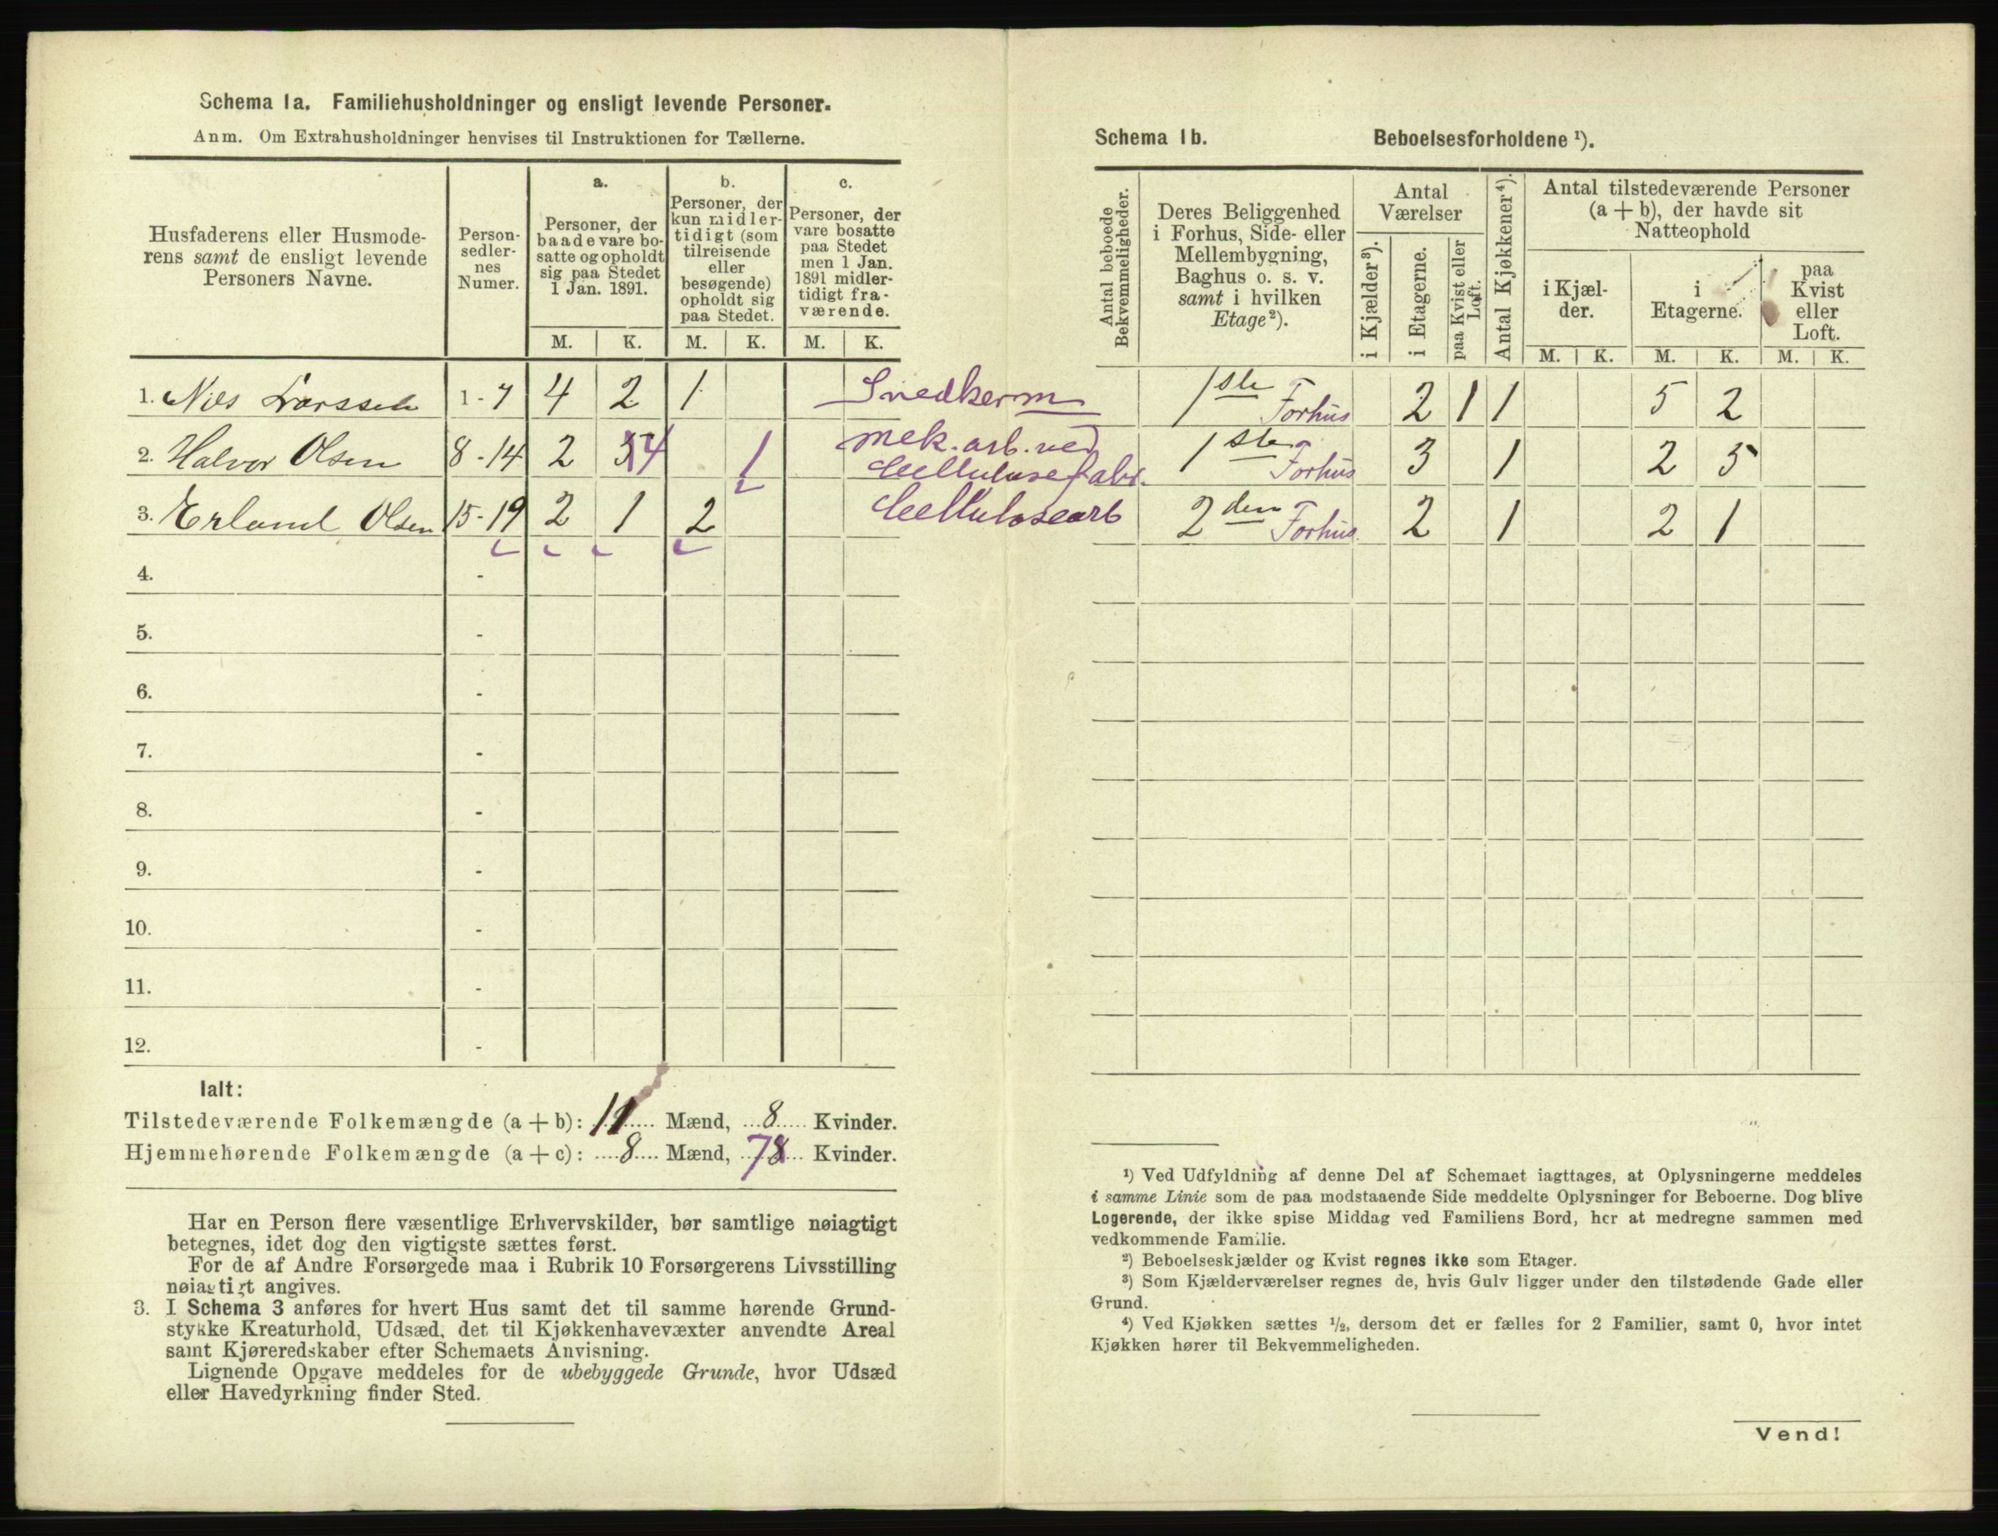 Schema 1a. Familiehusholdninger og ensligt levende Personer.
Anm. Om Extrahusholdninger henvises til Instruktionen for Tællerne.
Husfaderens eller Husmode-
rens samt de ensligt levende
Personers Navne.
Person-
sedler-
nes
Numer.
a.
Personer, der
baade vare bo-
satte og opholdt
sig paa Stedet
1 Jan. 1891.
b.
Personer, der
kun midler-
tidigt (som
tilreisende
eller
besøgende)
opholdt sig
paa Stedet.
c.
Personer, der
vare bosatte
paa Stedet
men 1 Jan.
1891 midler-
tidigt fra-
værende.
M. K. M. K. M. K.
1. Nils Larssen 1-7 4 2 1 Snedkerm
2. Halvor Olsen 8-14 2 4 1 mek. arb. ved
Cellulosefabr.
3. Erland Olsen 15-19 2 1 2 Cellulosearb
4. -
5. -
6. -
7. -
8. -
9. -
10. -
11. -
12. -
Ialt:
Tilstedeværende Folkemængde (a + b): 11 Mænd, 8 Kvinder.
Hjemmehørende Folkemængde (a + c): 8 Mænd, 7 8 Kvinder.
Har en Person flere væsentlige Erhvervskilder, bør samtlige nøiagtigt
betegnes, idet dog den vigtigste sættes først.
For de af Andre Forsørgede maa i Rubrik 10 Forsørgerens Livsstilling
nøiagtigt angives.
3. I Schema 3 anføres for hvert Hus samt det til samme hørende Grund-
stykke Kreaturhold, Udsæd, det til Kjøkkenhavevæxter anvendte Areal
samt Kjøreredskaber efter Schemaets Anvisning.
Lignende Opgave meddeles for de ubebyggede Grunde, hvor Udsæd
eller Havedyrkning finder Sted.
Schema 1b. Beboelsesforholdene ¹).
Antal beboede
Bekvemmeligheder.
Deres Beliggenhed
i Forhus, Side- eller
Mellembygning,
Baghus o. s. v.
samt i hvilken
Etage²).
Antal
Værelser
i Kjælder³).
i Etagerne.
paa Kvist eller
Loft.
Antal Kjøkkener⁴).
Antal tilstedeværende Personer
(a + b), der havde sit
Natteophold
i Kjæl-
der.
i
Etagerne.
paa
Kvist
eller
Loft.
M. K. M. K. M. K.
1ste Forhus 2 1 1 5 2
1ste Forhus 3 1 2 5
2den Forhus 2 1 2 1
¹) Ved Udfyldning af denne Del af Schemaet iagttages, at Oplysningerne meddeles
i samme Linie som de paa modstaaende Side meddelte Oplysninger for Beboerne. Dog blive
Logerende, der ikke spise Middag ved Familiens Bord, her at medregne sammen med
vedkommende Familie.
²) Beboelseskjælder og Kvist regnes ikke som Etager.
³) Som Kjælderværelser regnes de, hvis Gulv ligger under den tilstødende Gade eller
Grund.
⁴) Ved Kjøkken sættes ¹/₂, dersom det er fælles for 2 Familier, samt 0, hvor intet
Kjøkken hører til Bekvemmeligheden.
Vend!